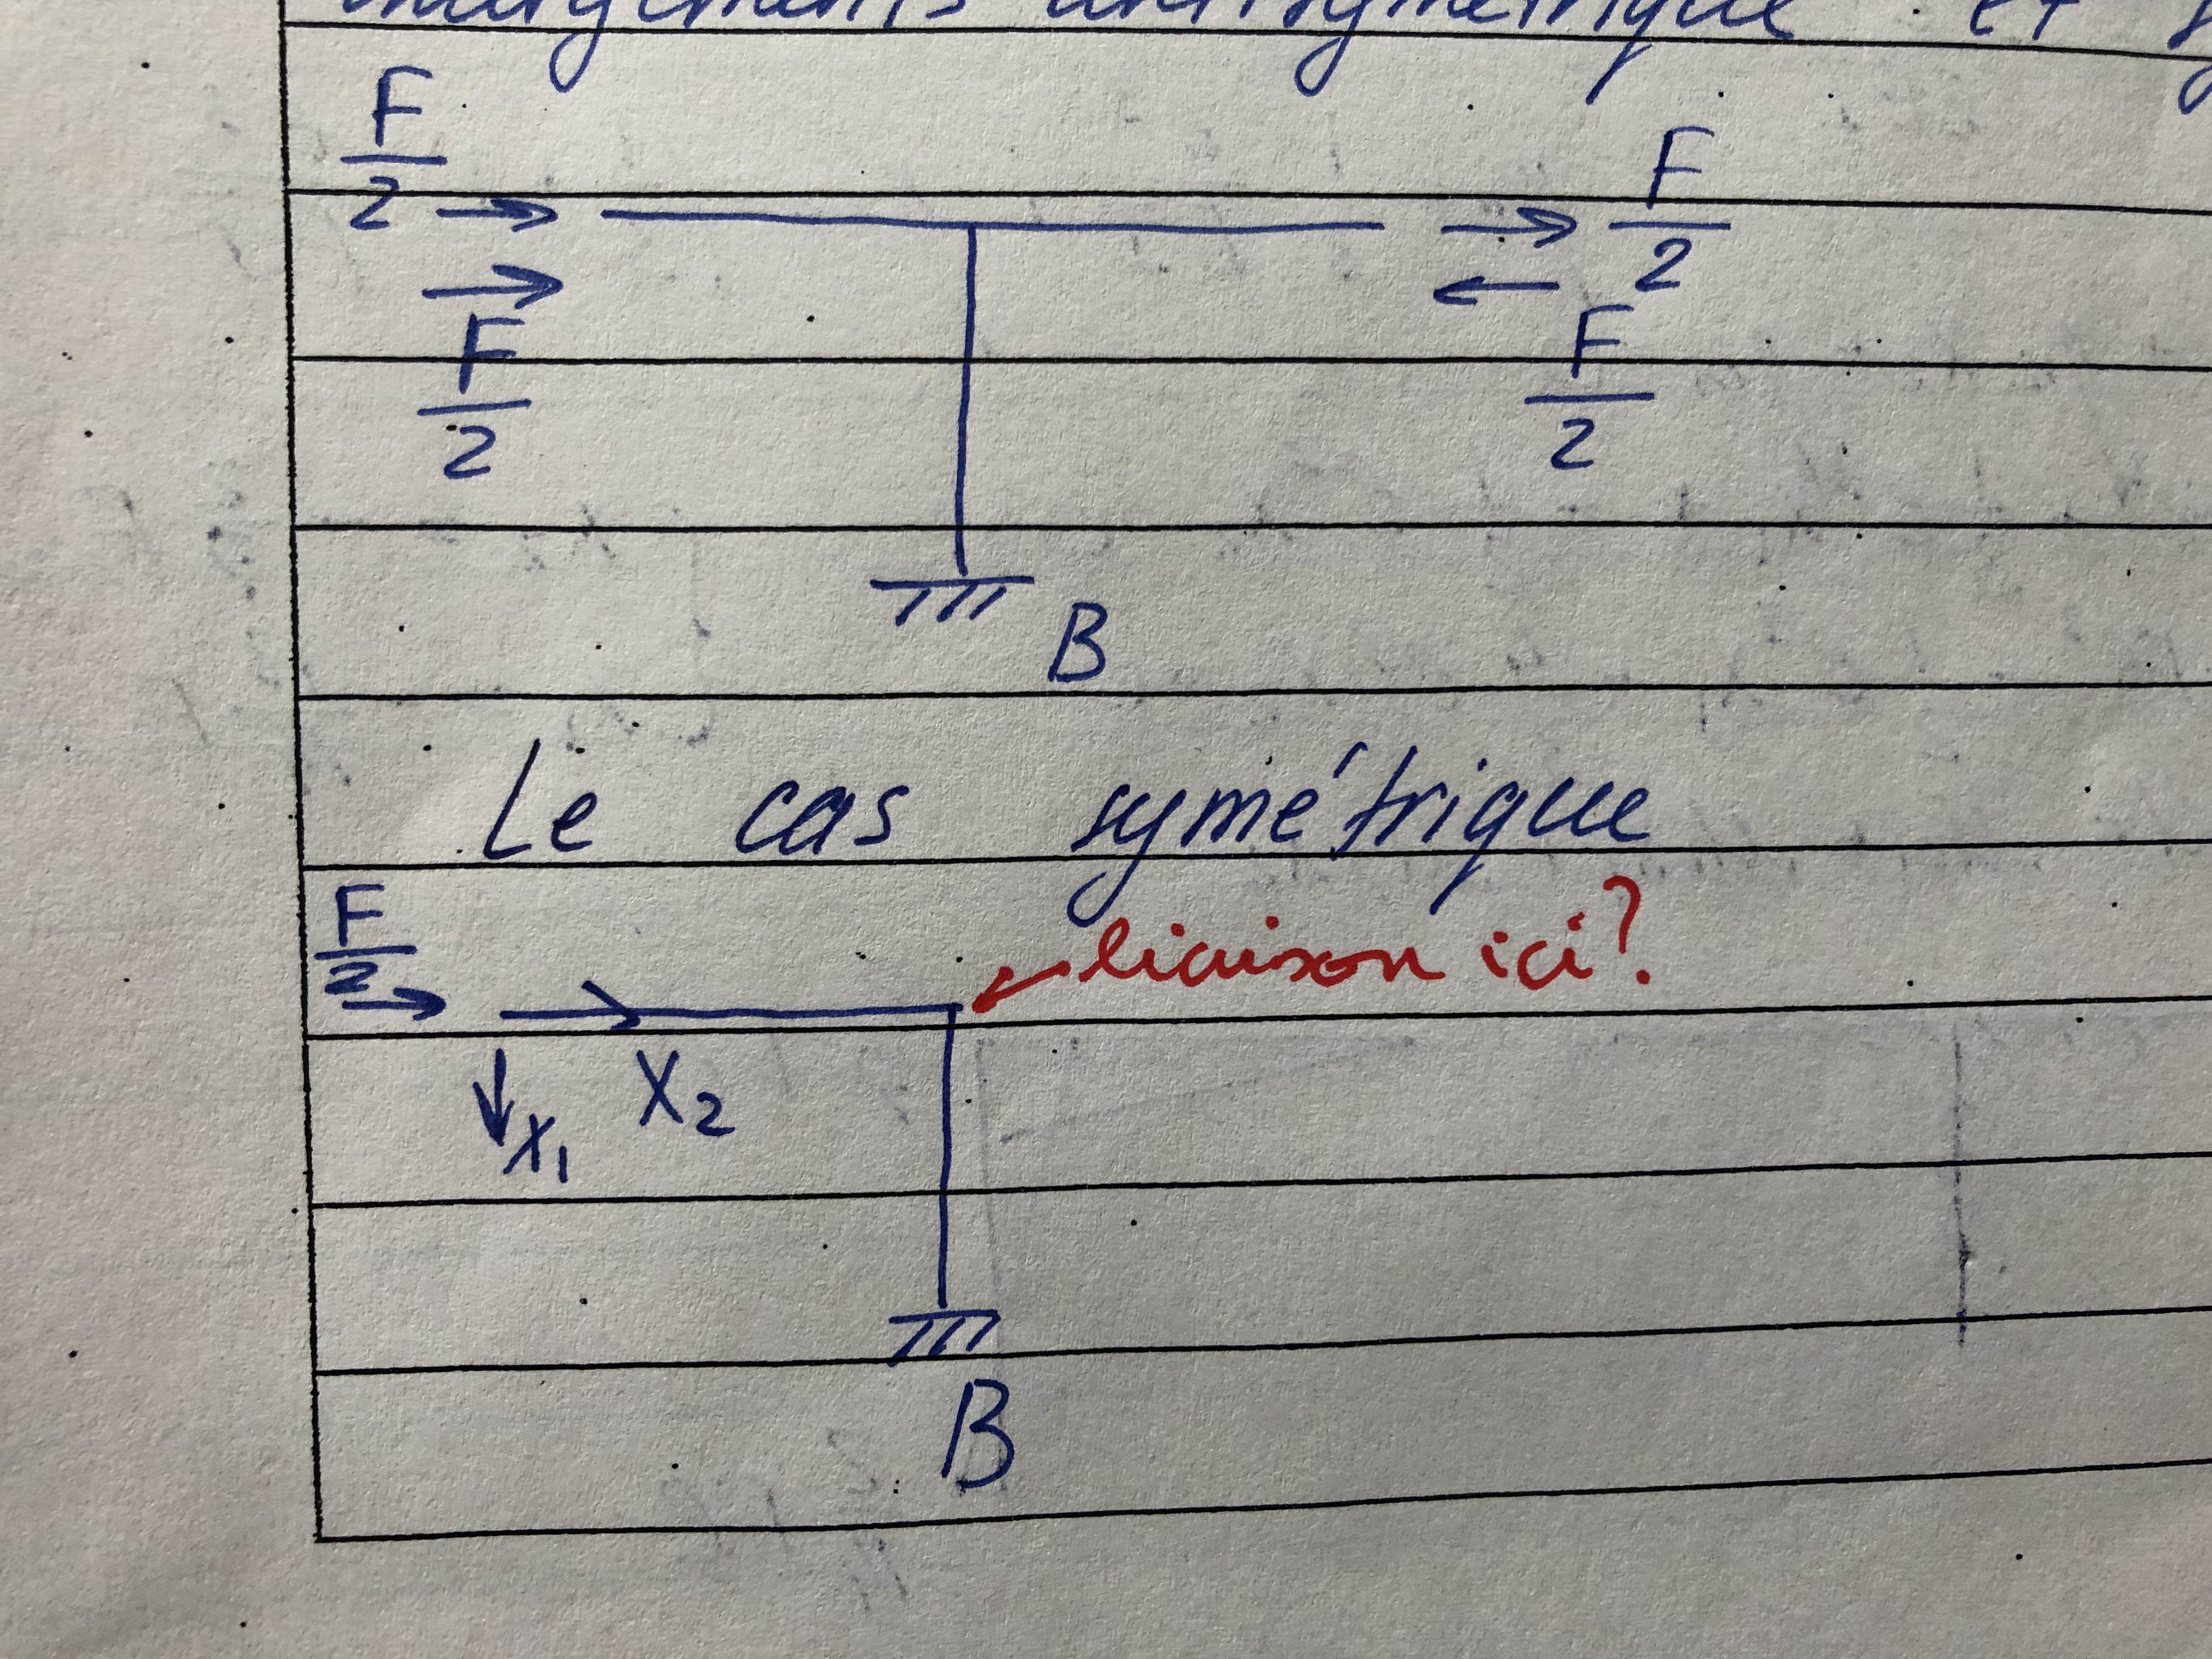 antisymétrique et
F/2 → → F/2
→ ←
F/2 F/2
B
Le cas symétrique
F/2 →
liaison ici?
X₂
↓X₁
B